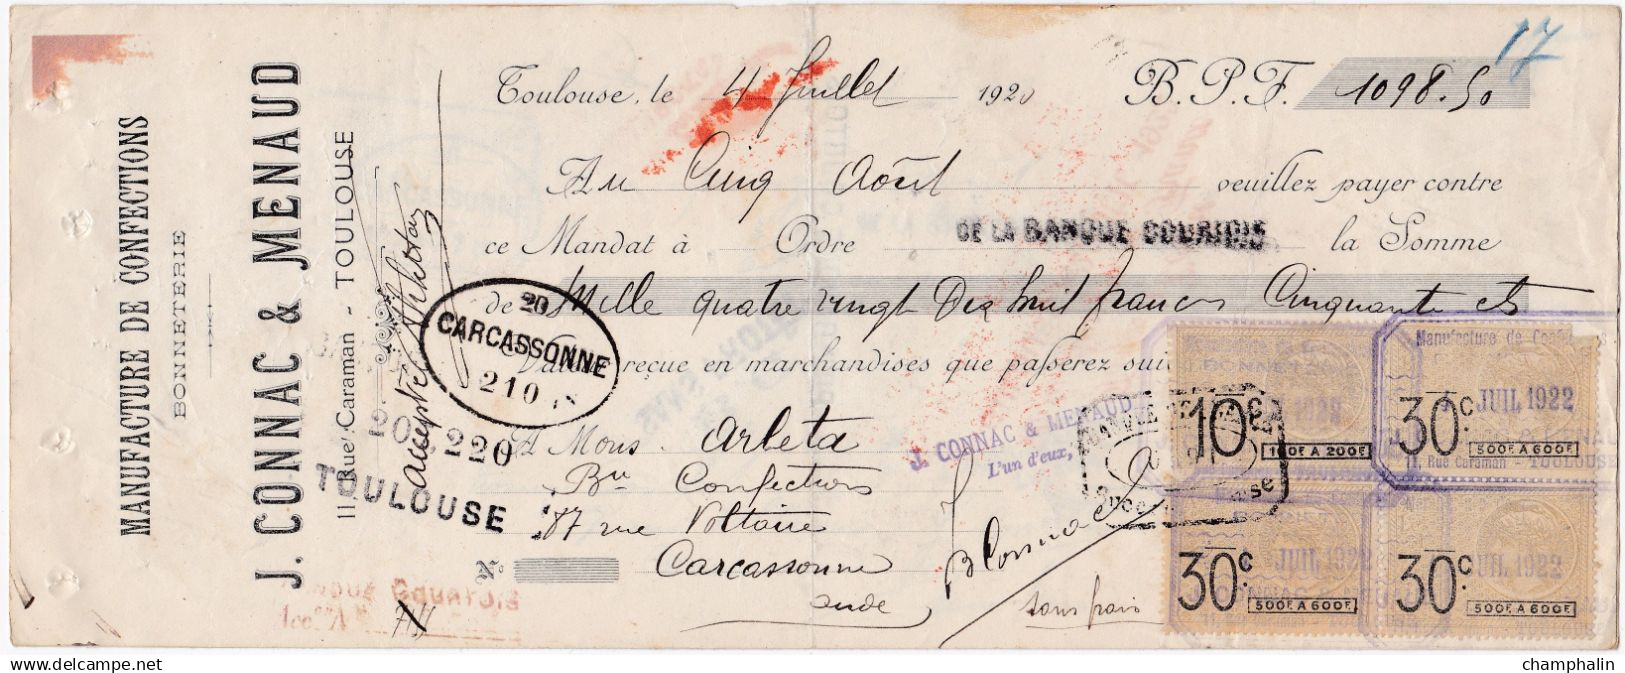 17
MANUFACTURE DE CONFECTIONS
BONNETERIE
J. CONNAC & MENAUD
11 Rue Caraman - TOULOUSE
Toulouse, le 4 Juillet 1920 B.P.F. 1098.50
Au Cinq Août veuillez payer contre
ce Mandat à Ordre DE LA BANQUE COURTOIS la Somme
de Mille quatre vingt Dix huit francs Cinquante cts
Valeur reçue en marchandises que passerez sui
A Mons. Arbeta
Bu Confections
87 rue Voltaire
Carcassonne
Aude
No
accepté
20
CARCASSONNE
210
20 220
TOULOUSE
BANQUE COURTOIS
J. CONNAC & MENAUD
L'un d'eux,
sans frais
Manufacture de Conf
BONNET
10c
100F A 200F
30c
500F A 600F
JUIL 1922
11, Rue Caraman - TOULOUSE
30c
500F A 600F
JUIL 1922
30c
500F A 600F
JUIL 1922
champhalin